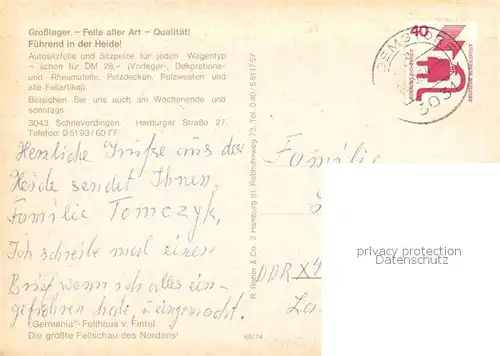 Großlager – Felle aller Art – Qualität!
Führend in der Heide!
Autositzfelle und Sitzpelze für jeden Wagentyp
– schon für DM 28,– (Vorleger-, Dekorations-
und Rheumafelle, Pelzdecken, Pelzwesten und
alle Fellartikel).
Besuchen Sie uns auch am Wochenende und
sonntags
3043 Schneverdingen Harburger Straße 27
Telefon: 0 51 93 / 60 77
Herzliche Grüße aus der
Heide sendet Ihnen
Familie Tomczyk,
Ich schreibe mal einen
Brief wenn ich alles ein-
gefroren hab, u eingemacht.
"Germania"-Fellhaus v. Fintel
Die größte Fellschau des Nordens!
65/74
2 Hamburg 61, Tel. 0 40 / 5 51 17 57
40
DEUTSCHE BUNDESPOST
Familie
DDR X4
privacy protection
www.oldthing.de